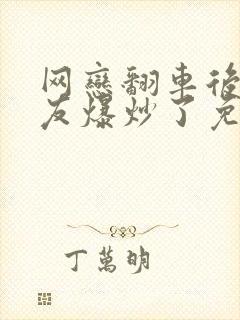 网戀翻車後
友爆炒了免
丁萬明